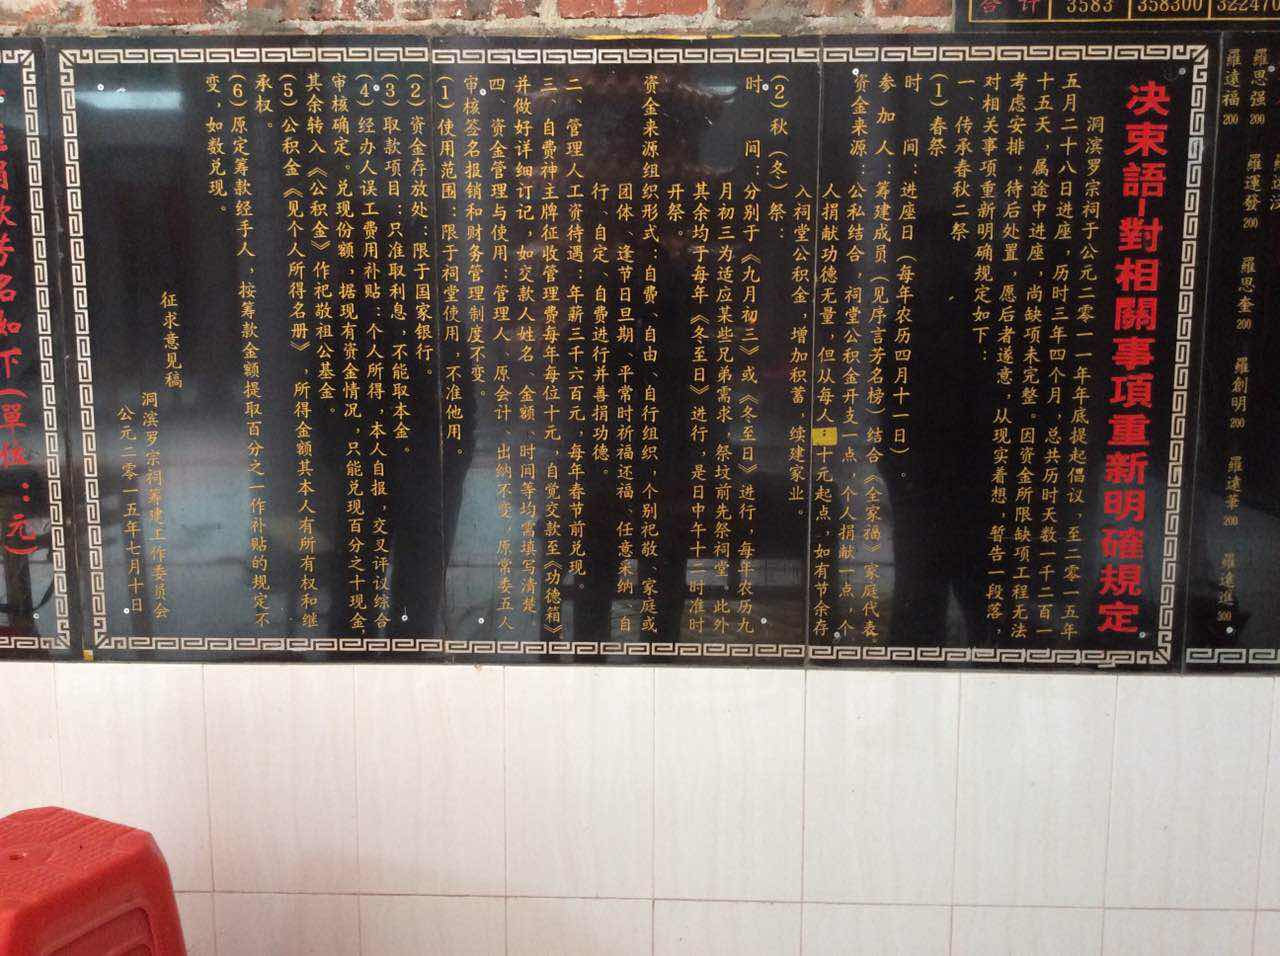 合計 3583 358300 322470
羅思强 200 羅運發 200 羅思奎 200 羅創明 200 羅遠華 200 羅遠進 300
羅遠福 200
决束語-對相關事項重新明確規定
洞滨罗宗祠于公元二零一一年年底提起倡议，至二零一五年
五月二十八日进座，历时三年四个月，总共历时天数一千二百一
十五天，属途中进座，尚缺项未完整。因资金所限缺项工程无法
考虑安排，待后处置，愿后者遂意，从现实着想，暂告一段落，
对相关事项重新明确规定如下：
一、传承春秋二祭
（1）春祭
时　间：进座日（每年农历四月十一日）。
参加人：筹建成员（见序言芳名榜）结合《全家福》家庭代表。
资金来源：公私结合，祠堂公积金开支一点，个人捐献一点，个
人捐献功德无量，但从每人 十元起点，如有节余存
入祠堂公积金，增加积蓄，续建家业。
（2）秋（冬）祭：
时　间：分别于《九月初三》或《冬至日》进行，每年农历九
月初三为适应某些兄弟需求，祭坟前先祭祠堂。此外
其余均于每年《冬至日》进行，是日中午十二时准时
开祭。
资金来源组织形式：自费、自由、自行组织，个别祀敬、家庭或
团体、逢节日旦期、平常时祈福还福、任意来纳、自
行、自定、自费进行并善捐功德。
二、管理人工资待遇：年薪三千六百元，每年春节前兑现。
三、自费神主牌征收管理费每年每位十元，自觉交款至《功德箱》
并做好详细订记，如交款人姓名、金额、时间等均需填写清楚，
四、资金管理与使用：管理人、原会计、出纳不变，原常委五人
审核签名报销和财务管理制度不变。
（1）使用范围：限于祠堂使用，不准他用。
（2）资金存放处：限于国家银行。
（3）取款项目：只准取利息，不能取本金。
（4）经办人误工费用补贴：个人所得，本人自报，交叉评议综合
审核确定。兑现份额，据现有资金情况，只能兑现百分之十现金，
其余转入《公积金》作祀敬祖公基金。
（5）公积金《见个人所得名册》，所得金额其本人有所有权和继
承权。
（6）原定筹款经手人，按筹款金额提取百分之一作补贴的规定不
变，如数兑现。
征求意见稿
洞滨罗宗祠筹建工作委员会
公元二零一五年七月十日
捐款芳名如下（單位：元）